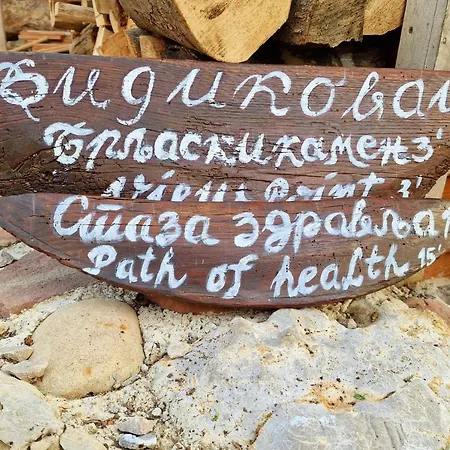 Видиковац
Брљаски камен 3'
Point 3'
Стаза здравља
Path of health 15'